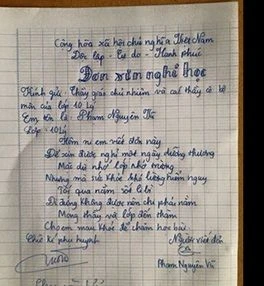 Cộng hòa xã hội chủ nghĩa Việt Nam
Độc lập - Tự do - Hạnh phúc
Đơn xin nghỉ học
Kính gửi: Thầy giáo chủ nhiệm và các thầy cô bộ
môn của lớp 10 Lý
Em tên là: Phạm Nguyên Vũ
Lớp: 10 Lý
Hôm ni em viết đơn này
Để xin được nghỉ một ngày đường thương
Mặc dù nhớ lớp nhớ trường
Nhưng mà sức khỏe khó lường hiểm nguy
Tối qua nằm sốt li bì
Đi đứng không được nên chi phải nằm
Mong thầy và lớp đến thăm
Cho em mau khỏe để chăm học bài
Chữ kí phụ huynh
Người viết đơn
Phạm Nguyên Vũ